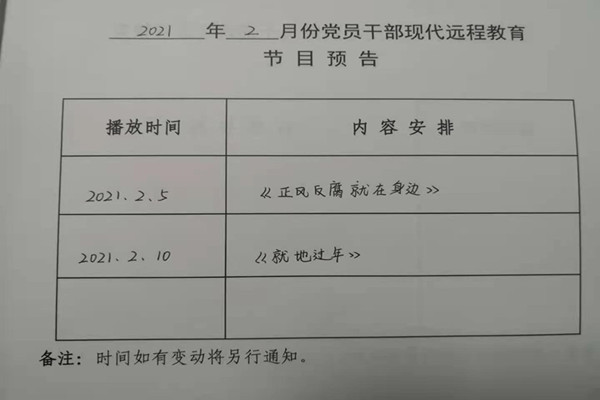 2021 年 2 月份党员干部现代远程教育
节目预告
播放时间 内容安排
2021.2.5 《正风反腐就在身边》
2021.2.10 《就地过年》
备注：时间如有变动将另行通知。